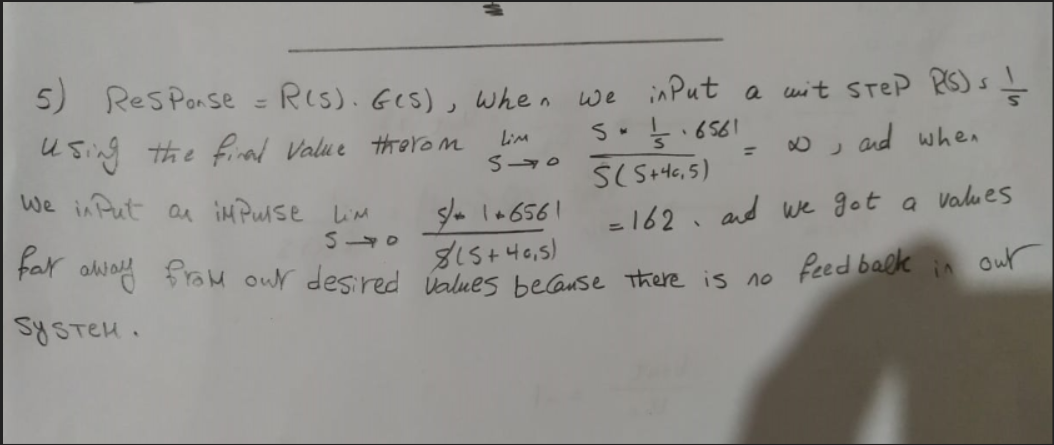 5) Response = R(s). G(s), when we input a unit step R(s) = 1/s
using the final value therom lim s→0 (s * 1/s . 6561)/(s(s+40,5)) = ∞, and when
we input an impulse lim s→0 (s * 1 * 6561)/(s(s+40,5)) = 162. and we got a values
far away from our desired values because there is no feedback in our
system.